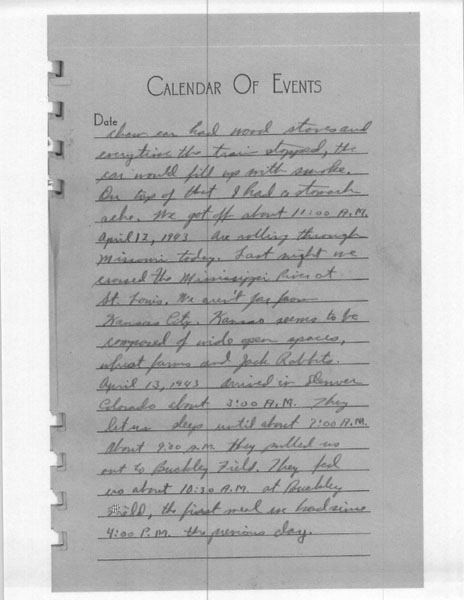 CALENDAR OF EVENTS
Date
chow car had wood stoves and
everytime the train stopped, the
car would fill up with smoke.
On top of that I had a stomach
ache. We got off about 11:00 A.M.
April 12, 1943 Are rolling through
Missouri today. Last night we
crossed the Mississippi River at
St. Louis. We aren't far from
Kansas City. Kansas seems to be
composed of wide open spaces,
wheat farms and Jack Rabbits.
April 13, 1943 Arrived in Denver
Colorado about 3:00 A.M. They
let us sleep until about 7:00 A.M.
About 9:00 A.M. they pulled us
out to Buckley Field. They fed
us about 10:30 A.M. at Buckley
Field, the first meal we had since
4:00 P.M. the previous day.